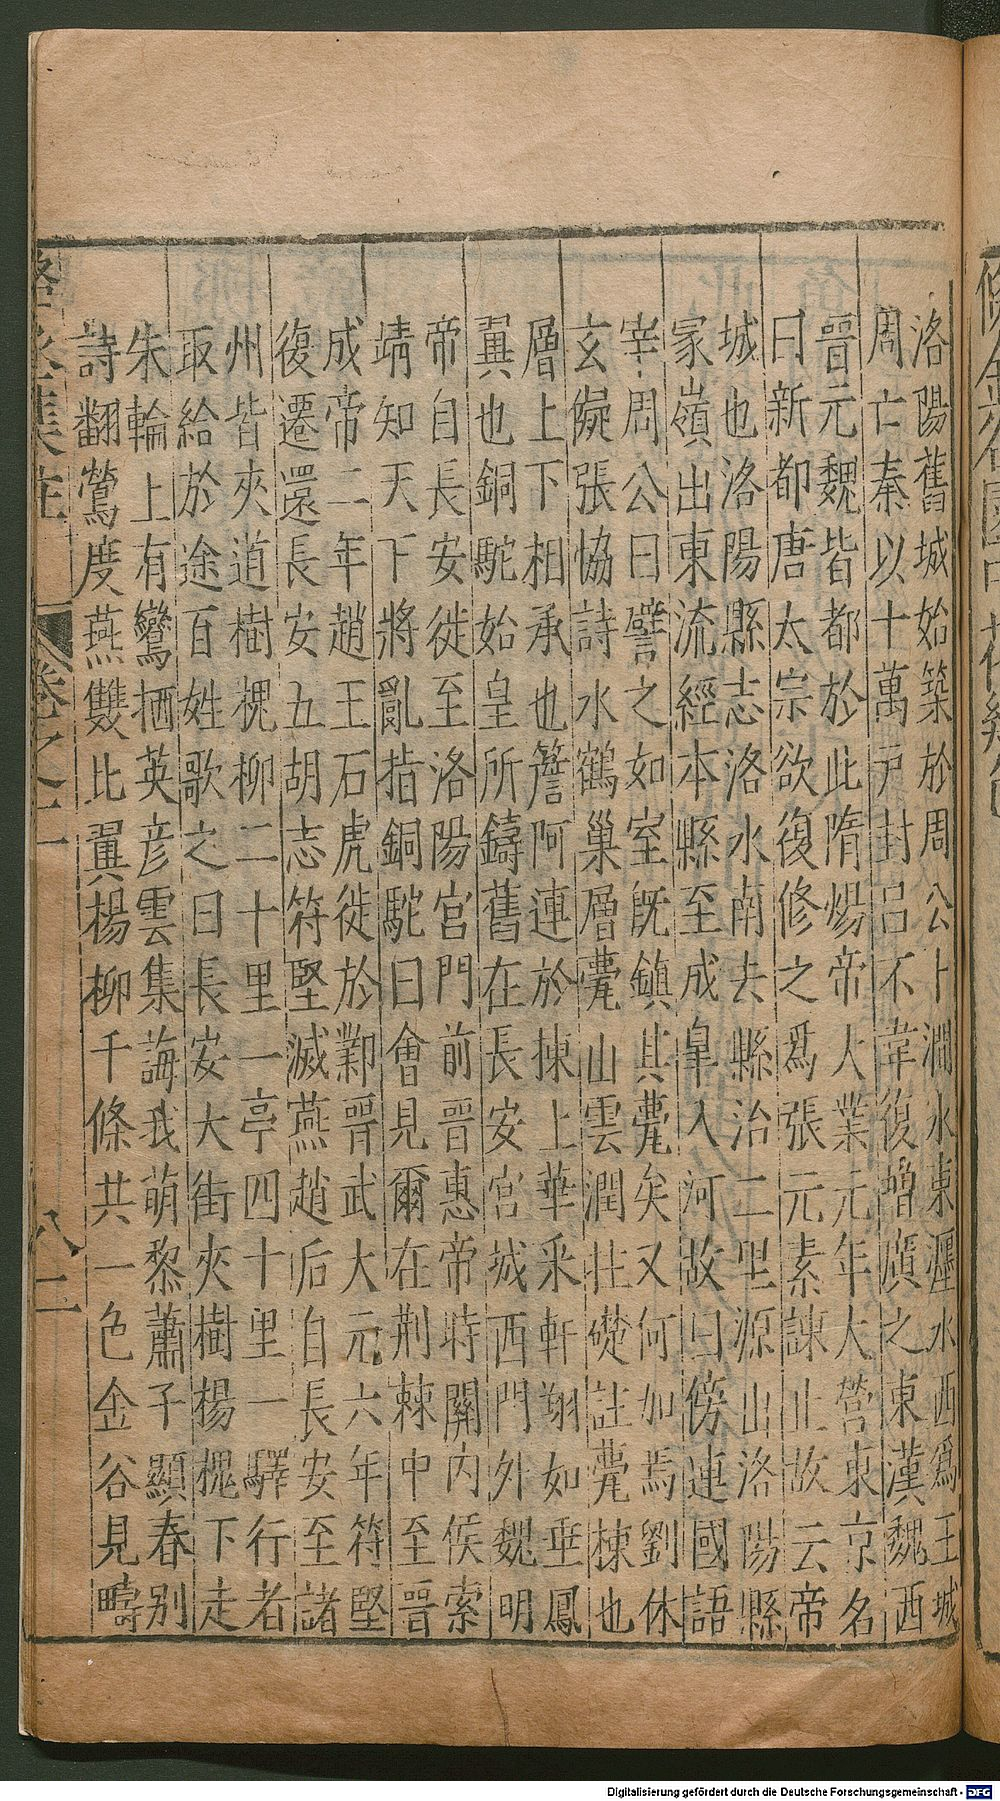 洛陽舊城始築於周公卜澗水東瀍水西爲王城
周亡秦以十萬戸封吕不韋復增廣之東漢魏西
晉元魏皆都於此隋煬帝大業元年大營東京名
曰新都唐太宗欲復修之爲張元素諫止故云帝
城也洛陽縣志洛水南去縣治二里源出洛陽縣
冢嶺出東流經本縣至成皐入河故曰傍連國語
宰周公曰譬之如室旣鎮其甍矣又何加焉劉休
玄擬張協詩水鶴巢層甍山雲潤壯礎註甍棟也
層上下相承也簷阿連於棟上華采軒翔如垂鳳
翼也銅駝始皇所鑄舊在長安宫城西門外魏明
帝自長安徙至洛陽宫門前晉惠帝時關内侯索
靖知天下將亂指銅駝曰會見爾在荆棘中至晉
成帝二年趙王石虎徙於鄴晉武大元六年符堅
復遷還長安五胡志符堅滅燕趙后自長安至諸
州皆夾道樹槐柳二十里一亭四十里一驛行者
取給於途百姓歌之曰長安大街夾樹楊槐下走
朱輪上有鸞栖英彦雲集誨我萌黎蕭子顯春别
詩翻鶯度燕雙比翼楊柳千條共一色金谷見疇
卷之二
八二
Digitalisierung gefördert durch die Deutsche Forschungsgemeinschaft - DFG